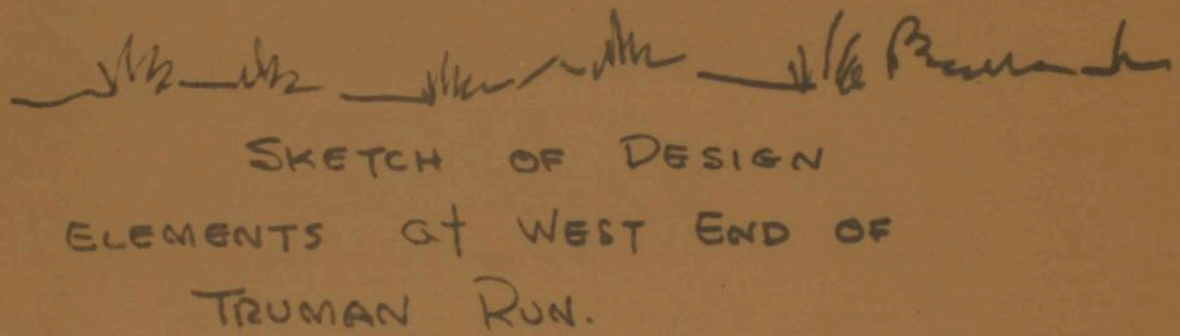 SKETCH OF DESIGN
ELEMENTS at WEST END OF
TRUMAN RUN.